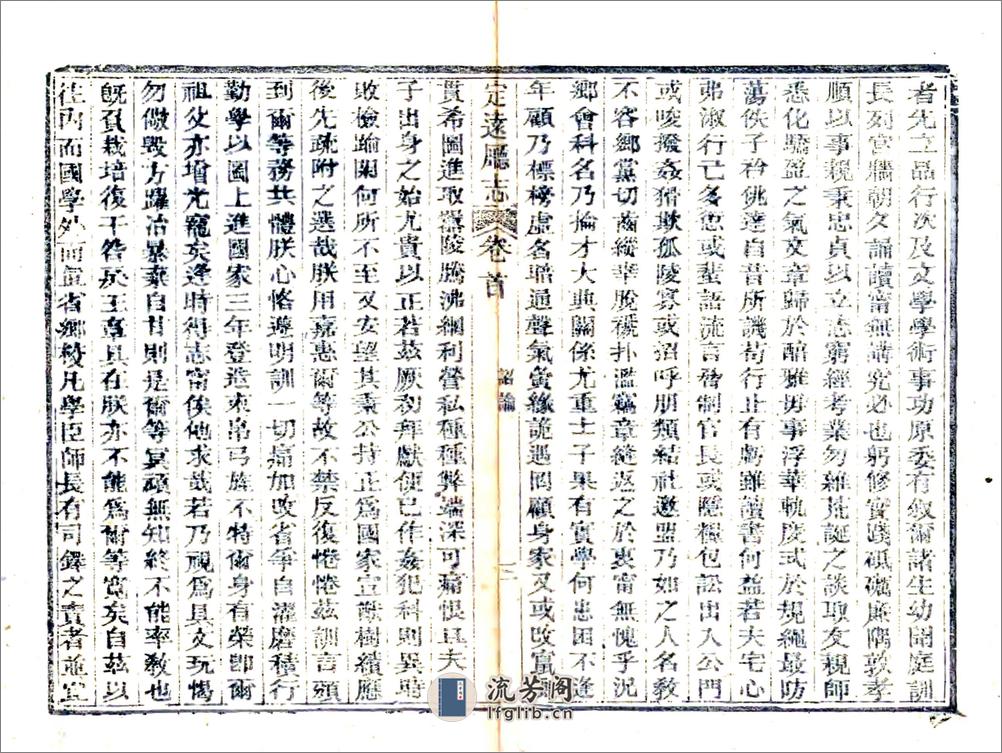 者先立品行次及文學學術事功原委有敘爾諸生幼聞庭訓
長列宮牆朝夕誦讀甯無講究必也躬修實踐砥礪廉隅敦孝
順以事親秉忠貞以立志窮經考業勿雜荒誕之談取友親師
悉化驕盈之氣文章歸於醇雅毋事浮華軌度式於規繩最防
蕩佚子衿佻達自昔所譏苟行止有虧雖讀書何益若夫宅心
弗淑行己多愆或蜚語流言脅制官長或隱糧包訟出入公門
或唆撥姦猾欺孤陵寡或招呼朋類結社邀盟乃如之人名教
不容鄉黨切齒縱幸脫褫扑濫竊章縫返之於衷甯無愧乎況
鄉會科名乃掄才大典關係尤重士子果有實學何患困不逢
年顧乃標榜虛名暗通聲氣夤緣詭遇罔顧身家又或改竄
定遠廳志 卷首 詔諭 二
貫希圖進取囂陵騰沸網利營私種種弊端深可痛恨且夫
子出身之始尤貴以正若茲厥初拜獻便已作姦犯科則異時
敗檢踰閑何所不至又安望其秉公持正為國家宣猷樹績膺
後先疏附之選哉朕用嘉惠爾等故不禁反復惓惓茲訓言頒
到爾等務共體朕心恪遵明訓一切痛加改省爭自濯磨積行
勤學以圖上進國家三年登造束帛弓旌不特爾身有榮卽爾
祖父亦增光寵矣逢時得志甯俟他求哉若乃視為具文玩愒
勿儆毀方躍冶暴棄自甘則是爾等冥頑無知終不能率教也
旣負栽培復干咎戾王章具在朕亦不能為爾等寬矣自茲以
往內而國學外而直省鄉校凡學臣師長有司鐸之責者並宜
流芳阁
lfglib.cn